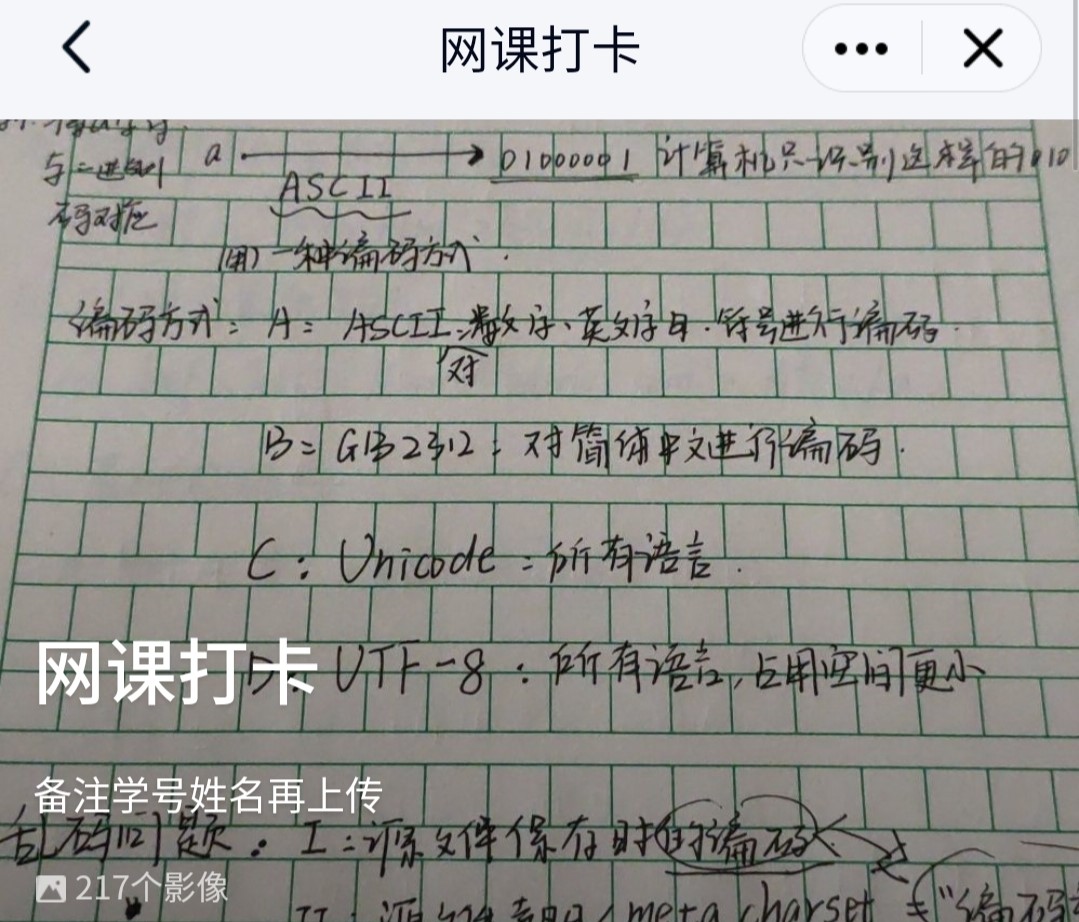 网课打卡
与二进制 a 01000001 计算机只识别这样的010
码对应 ASCII
(用)一种编码方式.
编码方式: A: ASCII:数字、英文字母.符号进行编码.
对
B: GB2312: 对简体中文进行编码.
C: Unicode:所有语言.
D: UTF-8:所有语言,占用空间更小
网课打卡
备注学号姓名再上传
乱码问题: I:源文件保存时的编码
217个影像
meta charset = "编码